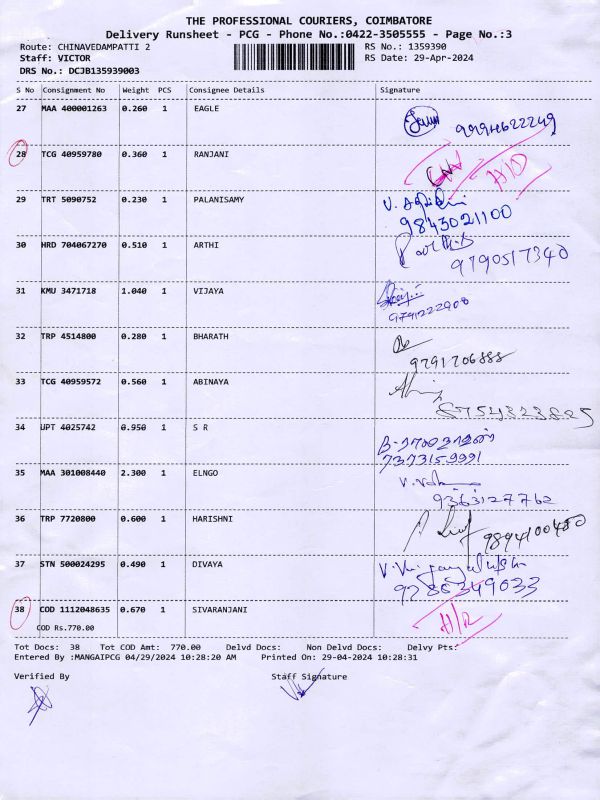 THE PROFESSIONAL COURIERS, COIMBATORE
Delivery Runsheet - PCG - Phone No.:0422-3505555 - Page No.:3
Route: CHINAVEDAMPATTI 2 RS No.: 1359390
Staff: VICTOR RS Date: 29-Apr-2024
DRS No.: DCJB135939003
S No Consignment No Weight PCS Consignee Details Signature
27 MAA 400001263 0.260 1 EAGLE
28 TCG 40959780 0.360 1 RANJANI
29 TRT 5090752 0.230 1 PALANISAMY
9843021100
30 HRD 704067270 0.510 1 ARTHI
9790517340
31 KMU 3471718 1.040 1 VIJAYA
9791222908
32 TRP 4514800 0.280 1 BHARATH
9791706888
33 TCG 40959572 0.560 1 ABINAYA
8754323825
34 UPT 4025742 0.950 1 S R
7373159991
35 MAA 301008440 2.300 1 ELNGO
9363127762
36 TRP 7720800 0.600 1 HARISHNI
9894100480
37 STN 500024295 0.490 1 DIVAYA
9286349033
38 COD 1112048635 0.670 1 SIVARANJANI
COD Rs.770.00
Tot Docs: 38 Tot COD Amt: 770.00 Delvd Docs: Non Delvd Docs: Delvy Pts:
Entered By :MANGAIPCG 04/29/2024 10:28:20 AM Printed On: 29-04-2024 10:28:31
Verified By Staff Signature